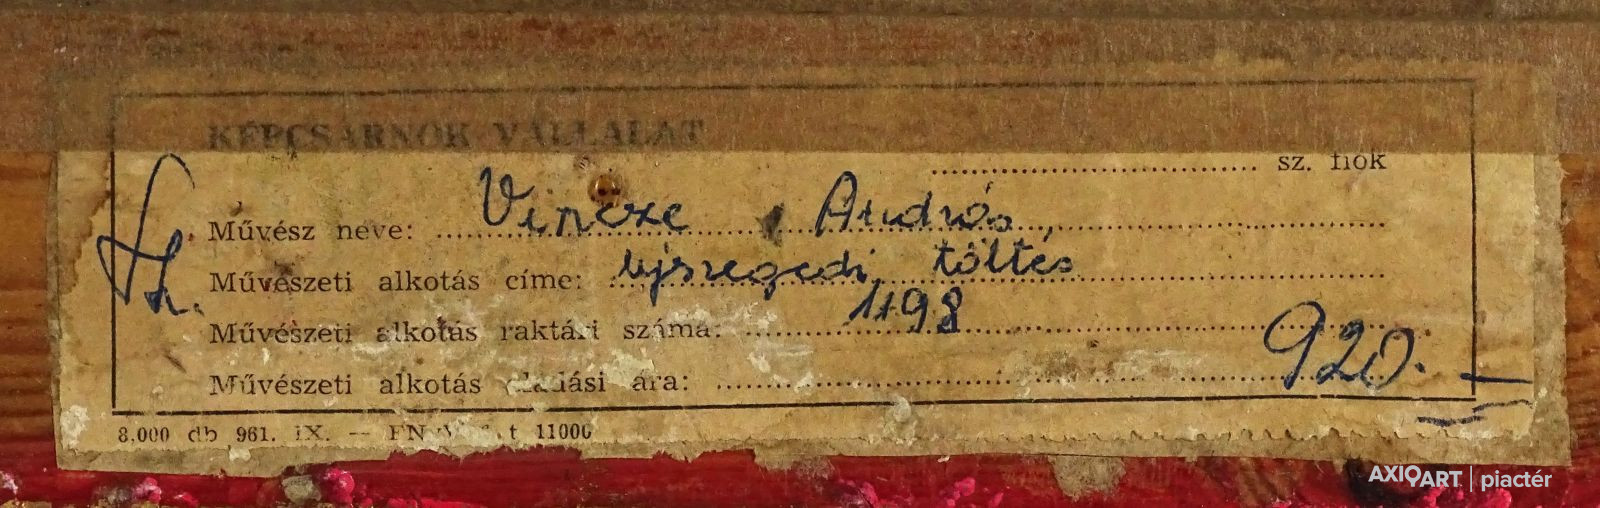 KÉPCSARNOK VÁLLALAT
sz. fiók
Művész neve: Vincze András,
Művészeti alkotás címe: ujszegedi töltés
Művészeti alkotás raktári száma: 1198
Művészeti alkotás eladási ára: 920.—
8.000 db 961. IX. — 11000
AXIOART | piactér